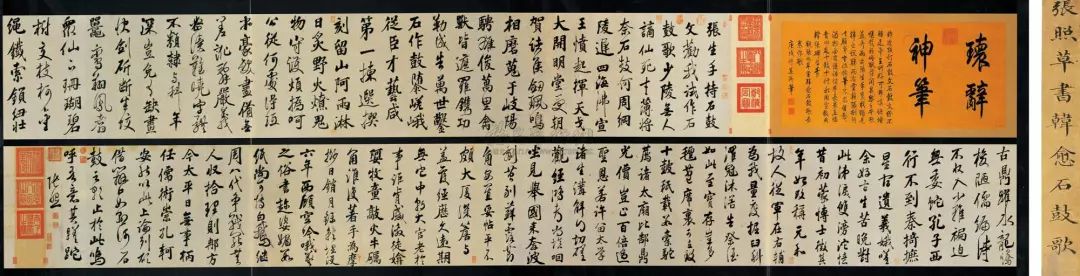 張照草書韓愈石鼓歌
瓌辭
神筆
張生手持石鼓
文勸我試作石
鼓歌少陵無人
謫仙死才薄將
奈石鼓何周綱
陵遲四海沸宣
王憤起揮天戈
大開明堂受朝
賀諸侯劒珮鳴
相磨蒐于岐陽
騁雄俊萬里禽
獸皆遮羅鐫功
勒成告萬世鑿
石作鼓隳嵯峨
從臣才藝咸
第一揀選撰
刻留山阿雨淋
日炙野火燎鬼
物守護煩撝呵
公從何處得紙
本毫髮盡備無
差訛辭嚴義
密讀難曉字體
不類隸與科年
深豈免有缺畫
快劍斫斷生蛟
鼉鸞翔鳳翥
衆仙下珊瑚碧
樹交枝柯金
繩鐵索鎖鈕壯
古鼎躍水龍騰
梭陋儒編詩
不收入二雅褊迫
無委蛇孔子西
行不到秦掎摭
星宿遺羲娥嗟
余好古生苦晚對
此涕淚雙滂沱憶
昔初蒙博士徵其
年始改稱元和
故人從軍在右輔
為我度量掘臼科
濯冠沐浴告祭酒
如此至寶存豈多
氊苞席裹可立致
十鼓祇載數駱駝
薦諸太廟比郜鼎
光價豈止百倍過
聖恩若許留太學
諸生講解得切磋
觀經鴻都尚填咽
坐見舉國來奔波
剜苔剔蘚露節
角安置妥帖平不
頗大廈深簷與
蓋覆經歷久遠期
無佗中朝大官老於
事詎肯感激徒媕
婀牧童敲火牛礪
角誰復著手為摩
挲日銷月鑠就埋沒
六年西顧空吟哦羲
之俗書趁姿媚數
紙尚可博白鵝繼
周八代爭戰罷無
人收拾理則那方
今太平日無事柄
任儒術崇丘軻
安能以此上論列願
借辯口如懸河石
鼓之歌止於此嗚
呼吾意其蹉跎
張照